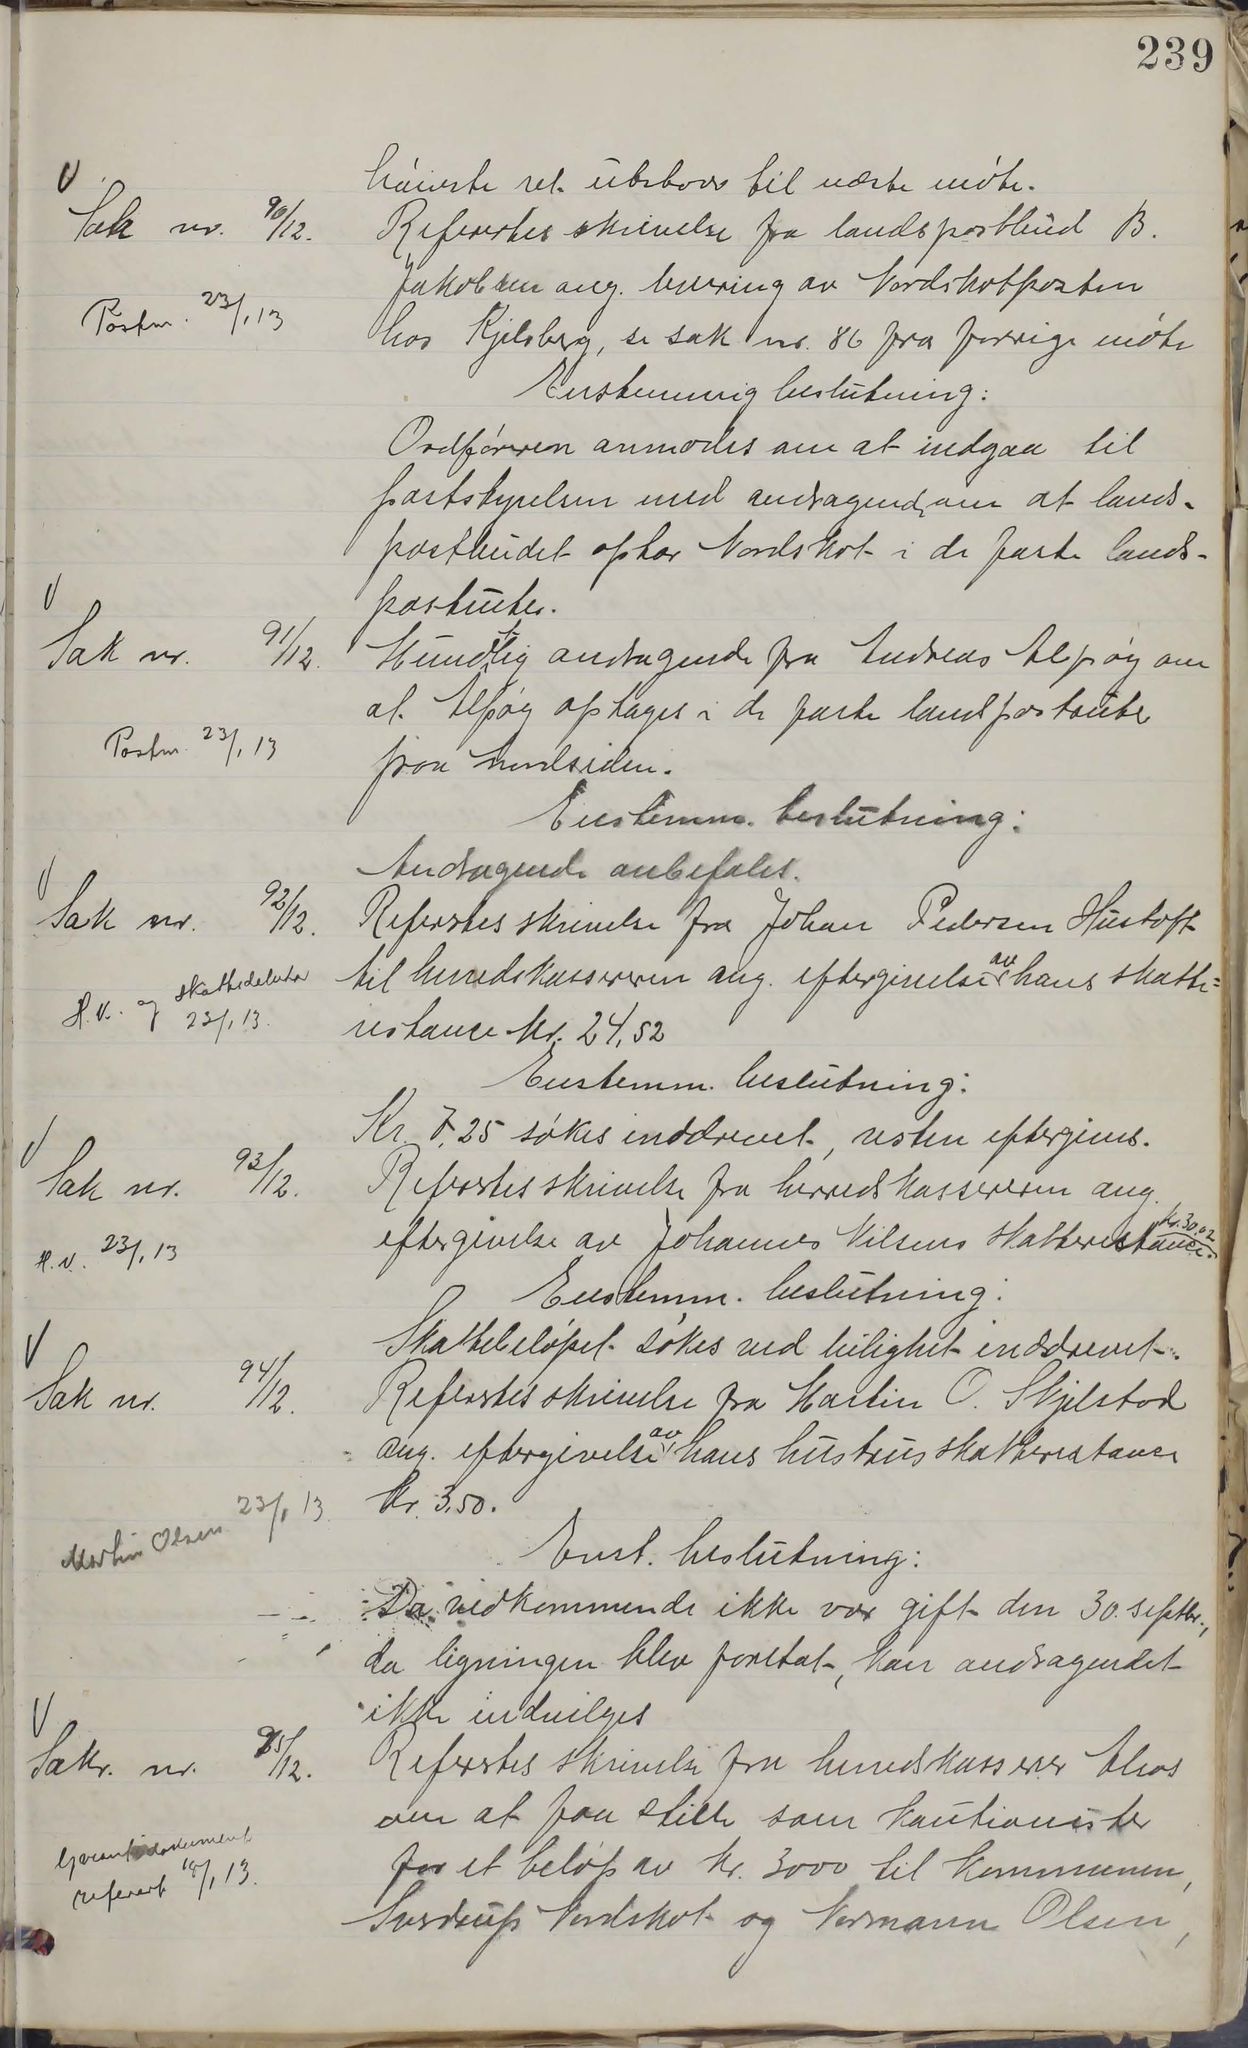 239
høieste rel. utstaar til næste møte.
Sak nr. 90/12. Refertes skrivelse fra landspostbud B.
Jakobsen ang. levering av Nordskotposten
Postm. 23/1 13
hos Kjelsberg, se sak nr. 86 fra forrige møte
Enstemmig beslutning:
Ordføreren anmodes om at indgaa til
poststyrelsen med andragende om at lands-
postbudet optar Nordskot i de faste lands-
postruter.
Sak nr. 91/12. Mundtlig andragende fra Andreas Alpøy om
at Alpøy optages i de faste landpostruter
Postm. 23/1 13
fra nordsiden.
Enstemm. beslutning:
Andragende anbefales.
Sak nr. 92/12. Refertes skrivelse fra Johan Pedersen Hustoft
til herredskassereren ang. eftergivelse av hans skatte-
H.K. og skattedebitor 23/1 13.
restance kr. 24,52
Enstemm. beslutning:
Kr. 7,25 søkes inddrevet, resten eftergives.
Sak nr. 93/12. Refertes skrivelse fra herredskassereren ang.
eftergivelse av Johannes Nilsens skatterestance. kr. 30,02
H.K. 23/1 13
Enstemm. beslutning:
Skattebeløpet søkes ved leilighet inddrevet.
Sak nr. 94/12. Refertes skrivelse fra Martin O. Skjelstad
ang. eftergivelse av hans hustrus skatterestance
kr. 3,50.
Martin Olsen 23/1 13
Enst. beslutning:
Da vedkommende ikke var gift den 30. septbr.,
da ligningen blev foretat, kan andragendet
ikke indvilges
Sakr. nr. 95/12. Refertes skrivelse fra herredskasserer Alsos
om at faa stille som kautionister
for et beløp av kr. 3000 til kommunen,
Garantidokument
referert 18/1 13.
Sverdrup Nordskot og Normann Olsen,